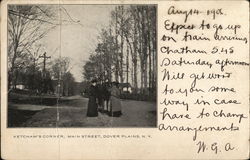 Aug 14. 1906
Expect to go up
on train arriving
Chatham 5.45
Saturday afternoon
Will get word
to you some
way in case
have to change
arrangements
W. G. A
KETCHAM'S CORNER, MAIN STREET, DOVER PLAINS, N. Y.